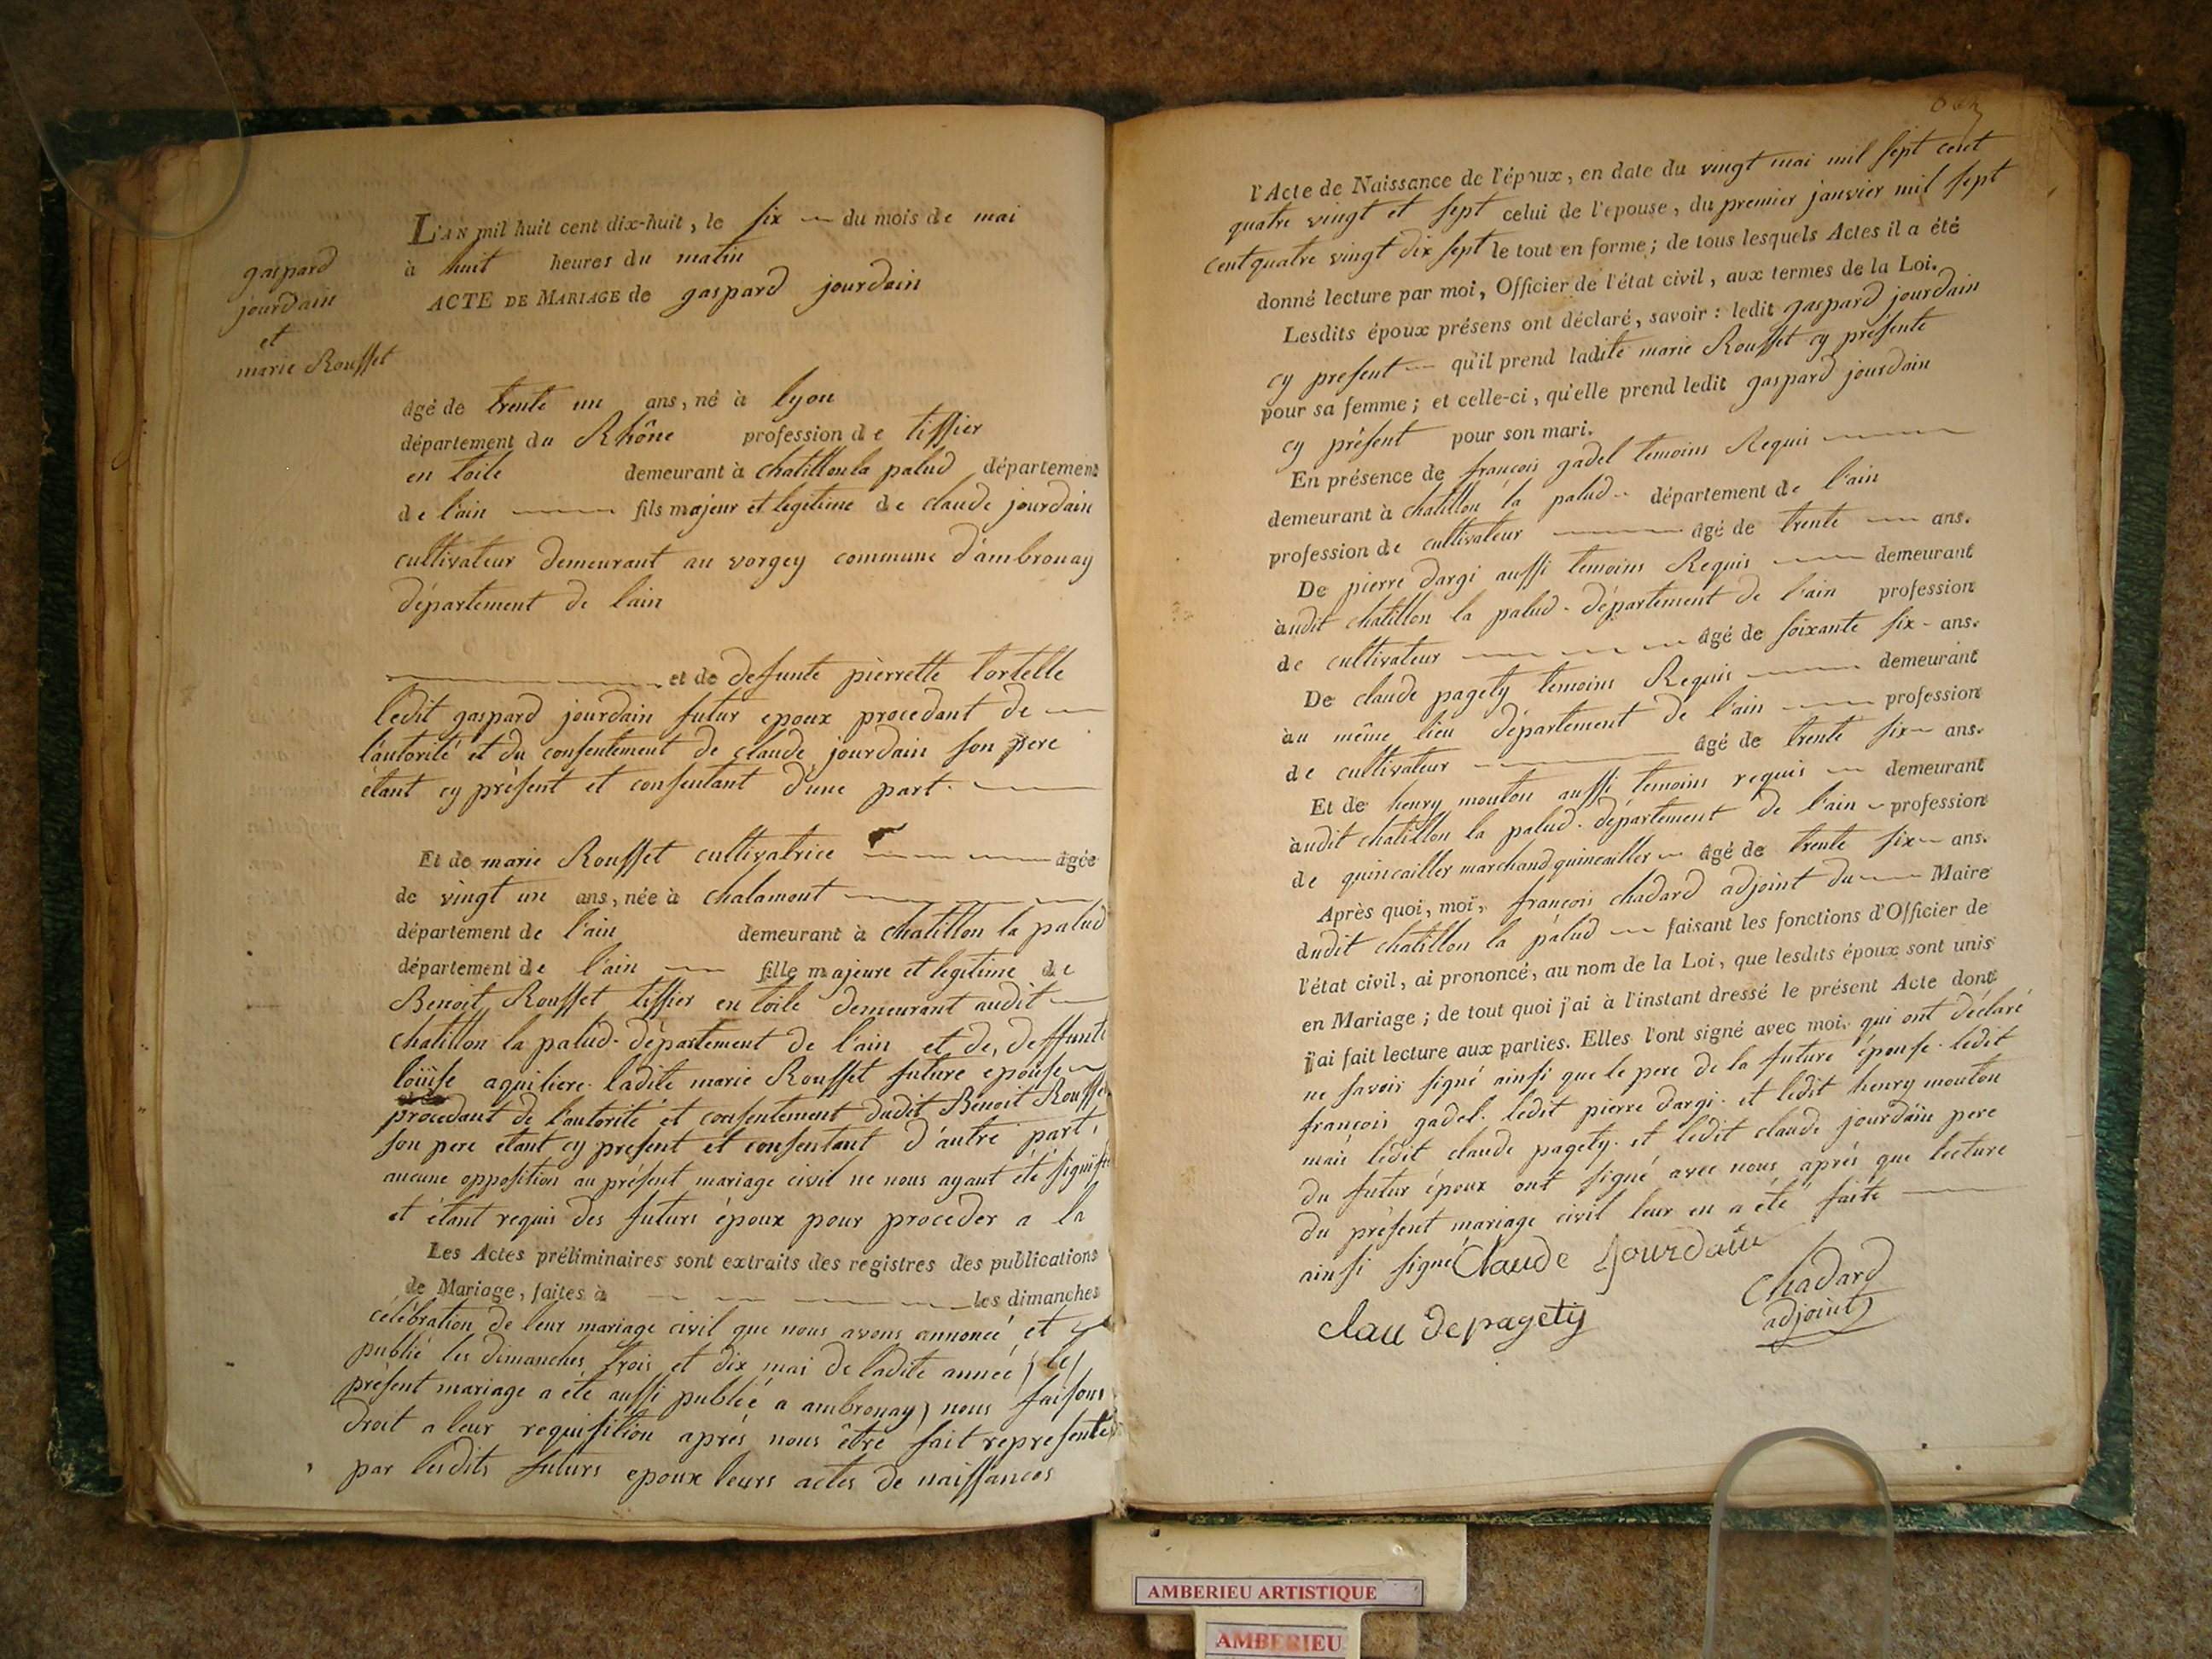 gaspard
jourdain
et
marie Rousset
L'AN mil huit cent dix-huit, le six du mois de mai
à huit heures du matin
ACTE DE MARIAGE de gaspard jourdain
âgé de trente un ans, né à lyon
département du Rhône profession de tissier
en toile demeurant à chatillon la palud département
de l'ain fils majeur et legitime de claude jourdain
cultivateur demeurant au vorgey commune d'ambronay
département de l'ain
et de defunte pierrette tortelle
ledit gaspard jourdain futur epoux procedant de
l'autorité et du consentement de claude jourdain son pere
étant cy présent et consentant d'une part.
Et de marie Rousset cultivatrice âgée
de vingt un ans, née à chalamont
département de l'ain demeurant à chatillon la palud
département de l'ain fille majeure et legitime de
Benoit Rousset tissier en toile demeurant audit
chatillon la palud. département de l'ain et de, deffunte
loüise aquiliere. ladite marie Rousset future epouse
procedant de l'autorité et consentement dudit Benoit Rousset
son pere etant cy present et consentant d'autre part,
aucune opposition au présent mariage civil ne nous ayant été signifié
et étant requis des futurs époux pour proceder a la
Les Actes préliminaires sont extraits des registres des publications
de Mariage, faites à les dimanches
célébration de leur mariage civil que nous avons annoncé et
publié les dimanches trois et dix mai de ladite année (le
présent mariage a été aussi publié a ambronay) nous faisons
droit a leur requisition aprés nous être fait representé
par lesdits futurs epoux leurs actes de naissances
l'Acte de Naissance de l'époux, en date du vingt mai mil sept cent
quatre vingt et sept celui de l'épouse, du premier janvier mil sept
cent quatre vingt dix sept le tout en forme; de tous lesquels Actes il a été
donné lecture par moi, Officier de l'état civil, aux termes de la Loi.
Lesdits époux présens ont déclaré, savoir: ledit gaspard jourdain
cy present qu'il prend ladite marie Rousset cy presente
pour sa femme; et celle-ci, qu'elle prend ledit gaspard jourdain
cy présent pour son mari.
En présence de françois gadel temoins Requis
demeurant à chatillon la palud département de l'ain
profession de cultivateur âgé de trente ans.
De pierre dargi aussi temoins Requis demeurant
àudit chatillon la palud - département de l'ain profession
de cultivateur âgé de soixante six ans.
De claude pagety temoins Requis demeurant
àu même lieu département de l'ain profession
de cultivateur âgé de trente six ans.
Et de henry mouton aussi temoins requis demeurant
àudit chatillon la palud. département de l'ain profession
de quincailler marchand quincailler âgé de trente six ans.
Après quoi, moi, françois chadard adjoint du Maire
dudit chatillon la palud faisant les fonctions d'Officier de
l'état civil, ai prononcé, au nom de la Loi, que lesdits époux sont unis
en Mariage; de tout quoi j'ai à l'instant dressé le présent Acte dont
j'ai fait lecture aux parties. Elles l'ont signé avec moi, qui ont déclaré
ne savoir signé ainsi que le pere de la future épouse. ledit
françois gadel. ledit pierre dargi. et ledit henry mouton
mais ledit claude pagety. et ledit claude jourdain pere
du futur époux ont signé avec nous aprés que lecture
du présent mariage civil leur en a été faite
ainsi signé Claude Jourdain
Chadard
adjoint
clau de pagety
AMBERIEU ARTISTIQUE
AMBERIEU